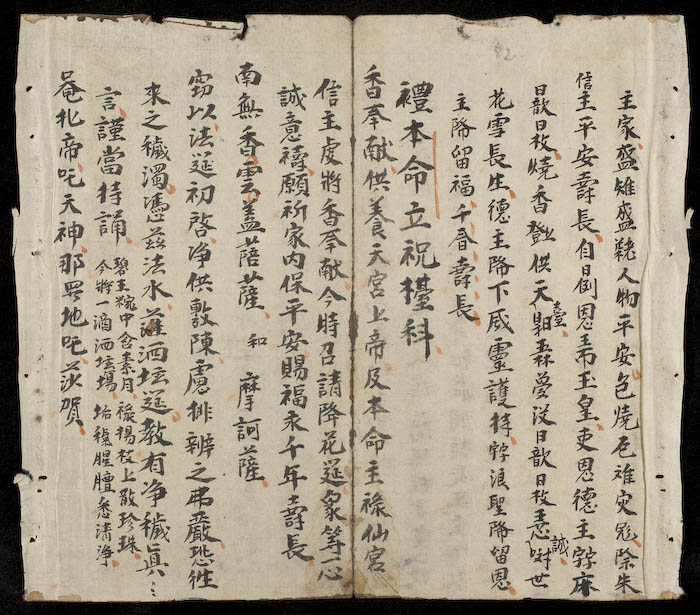 主家盛雉盛𤠄人物平安包燒厄难灾𨒺除朱
信主平安壽長自日倒恩王帝玉皇吏恩德主𧦕麻
日歆日枚燒香燈供天臺朝森蔓没日歆日枚誠㤅呌世
花雪長生德主降下威靈護持𧦕浪聖降留恩
主降留福千春壽長
禮本命立祝𢷏科
香奉献供養天宮上帝及本命主祿仙宮
信主虔將香奉献今時召請降花筵衆等一心
誠意禱願祈家內保平安賜福永千年壽長
南無香雲盖菩薩 和 摩訶薩
窃以法筵初啓净供敷陳慮排辦之弗嚴恐徃
來之穢濁憑兹法水灑洒坛筵教有净穢真⋯
言謹當持誦 碧玉椀中含素月 綠楊枝上散珍珠
今將一滴洒坛場 垢穢腥膻悉清淨
唵札帝吒天神那罗地吒莎賀